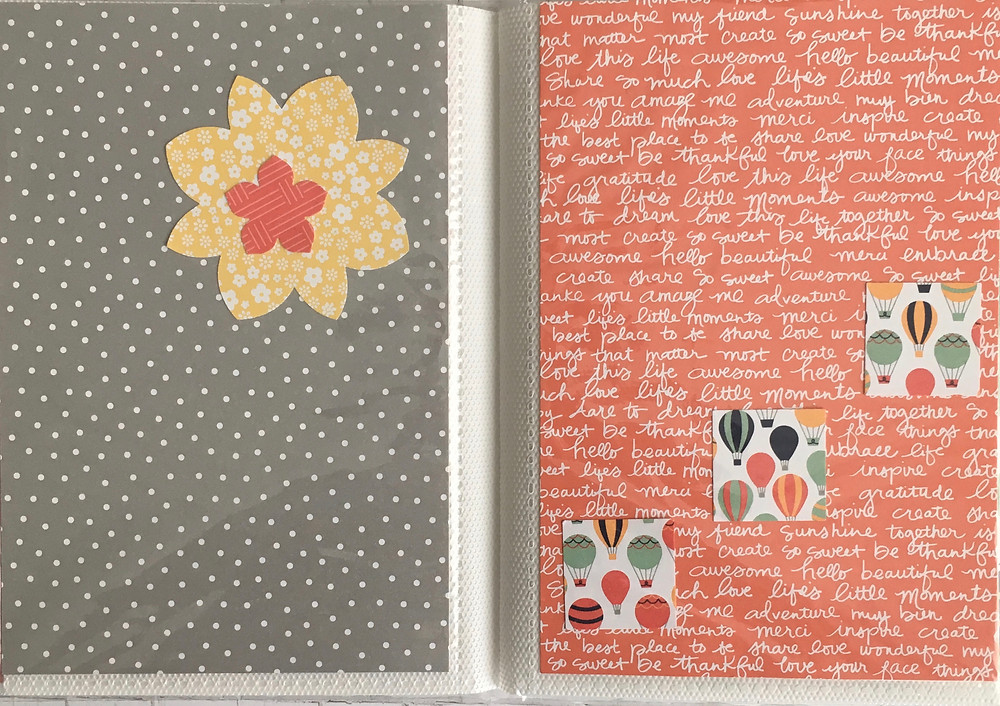 ve wonderful my friend sunshine together is
hat matter most create so sweet be thankfu
love this life awesome hello beautiful m
Share so much love life's little moments
anke you amaze me adventure muy bien drea
life's little moments merci inspire create
the best place to be share love wonderful my
so sweet be thankful love your face things
ife gratitude love this life awesome hell
ch love life's little moments awesome insp
are to dream love this life together so sweet
most create so sweet be thankful love you
awesome hello beautiful merci embrace
create share so sweet awesome so sweet li
anke you amaze me adventure
weet life's little moments merci i
best place to be share love won
hings that matter most create s
love this life awesome hello
ch love life's little moments
dare to dream life together so
sweet be thankf face things tha
e hello beautifu mbrace life grat
weet life's little mom inspire create
beautiful merci gratitude lo
life's little moments inspire create sha
my friend sunshine together is
ost create so sweet be thankfu
awesome hello beautiful me
ch love life's little moments
me adventure muy bien drea
life's little moments merci inspire create
the best place to be share love wonderful my
so sweet be thankful love your face things